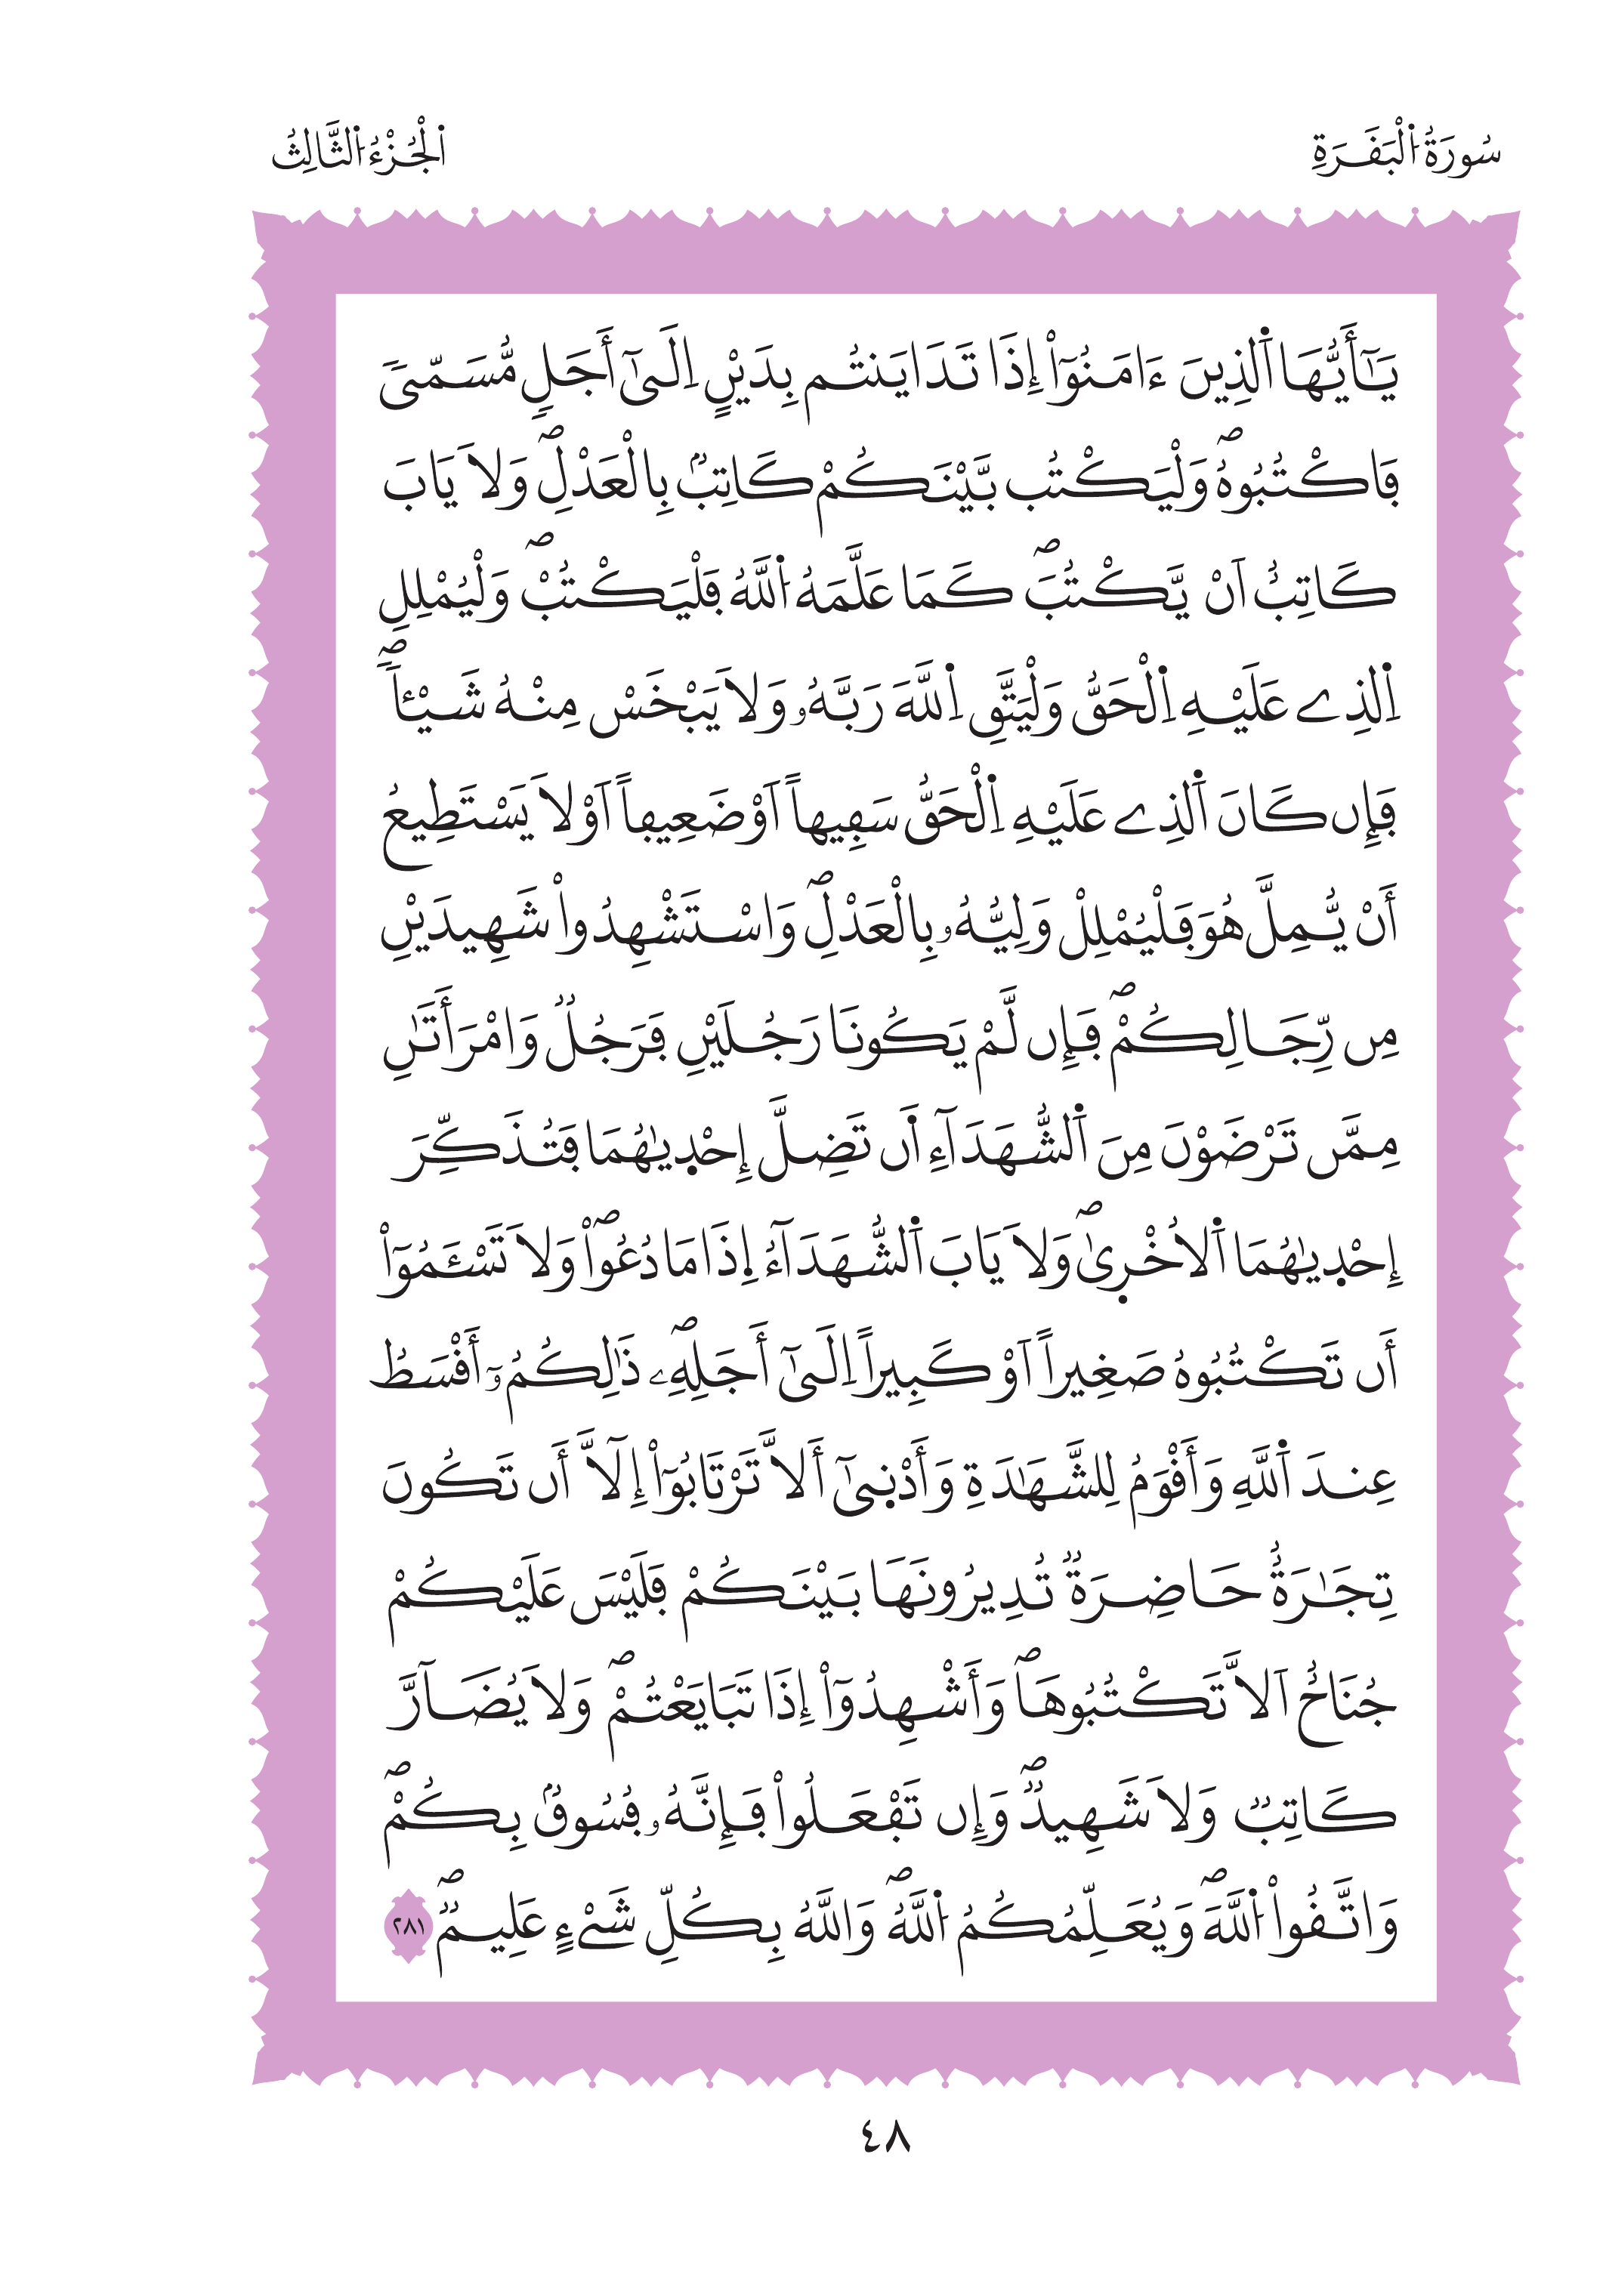 سُورَةُ اُ۬لْبَقَرَةِ
اَ۬لْجُزْءُ اُ۬لثَّالِثُ
يَٰٓأَيُّهَا اَ۬لذِينَ ءَامَنُوٓاْ إِذَا تَدَايَنتُم بِدَيْنٍ اِلَيٰٓ أَجَلٖ مُّسَمّيٗ
فَاكْتُبُوهُۖ وَلْيَكْتُب بَّيْنَكُمْ كَاتِبُۢ بِالْعَدْلِۖ وَلَا يَابَ
كَاتِبٌ اَنْ يَّكْتُبَۖ كَمَا عَلَّمَهُ اُ۬للَّهُ فَلْيَكْتُبْۖ وَلْيُمْلِلِ
اِ۬لذِے عَلَيْهِ اِ۬لْحَقُّ وَلْيَتَّقِ اِ۬للَّهَ رَبَّهُۥ وَلَا يَبْخَسْ مِنْهُ شَيْـٔاٗۖ
فَإِن كَانَ اَ۬لذِے عَلَيْهِ اِ۬لْحَقُّ سَفِيهاً اَوْ ضَعِيفاً اَوْ لَا يَسْتَطِيعُ
أَنْ يُّمِلَّ هُوَ فَلْيُمْلِلْ وَلِيُّهُۥ بِالْعَدْلِۖ وَاسْتَشْهِدُواْ شَهِيدَيْنِ
مِن رِّجَالِكُمْۖ فَإِن لَّمْ يَكُونَا رَجُلَيْنِ فَرَجُلٞ وَامْرَأَتَٰنِ
مِمَّن تَرْضَوْنَ مِنَ اَ۬لشُّهَدَآءِ اَ۬ن تَضِلَّ إِحْد۪يٰهُمَا فَتُذَكِّرَ
إِحْد۪يٰهُمَا اَ۬لُاخْر۪يٰۖ وَلَا يَابَ اَ۬لشُّهَدَآءُ اِ۪ذَا مَا دُعُواْۖ وَلَا تَسْـَٔمُوٓاْ
أَن تَكْتُبُوهُ صَغِيراً اَوْ كَبِيراً اِلَيٰٓ أَجَلِهِۦۖ ذَٰلِكُمُۥٓ أَقْسَطُ
عِندَ اَ۬للَّهِ وَأَقْوَمُ لِلشَّهَٰدَةِ وَأَدْن۪يٰٓ أَلَّا تَرْتَابُوٓاْ إِلَّآ أَن تَكُونَ
تِجَٰرَةٌ حَاضِرَةٞ تُدِيرُونَهَا بَيْنَكُمْ فَلَيْسَ عَلَيْكُمْ
جُنَاحٌ اَلَّا تَكْتُبُوهَاۖ وَأَشْهِدُوٓاْ إِذَا تَبَايَعْتُمْۖ وَلَا يُضَآرَّ
كَاتِبٞ وَلَا شَهِيدٞۖ وَإِن تَفْعَلُواْ فَإِنَّهُۥ فُسُوقُۢ بِكُمْۖ
وَاتَّقُواْ اُ۬للَّهَۖ وَيُعَلِّمُكُمُ اُ۬للَّهُۖ وَاللَّهُ بِكُلِّ شَےْءٍ عَلِيمٞۖ ٢٨١
٤٨